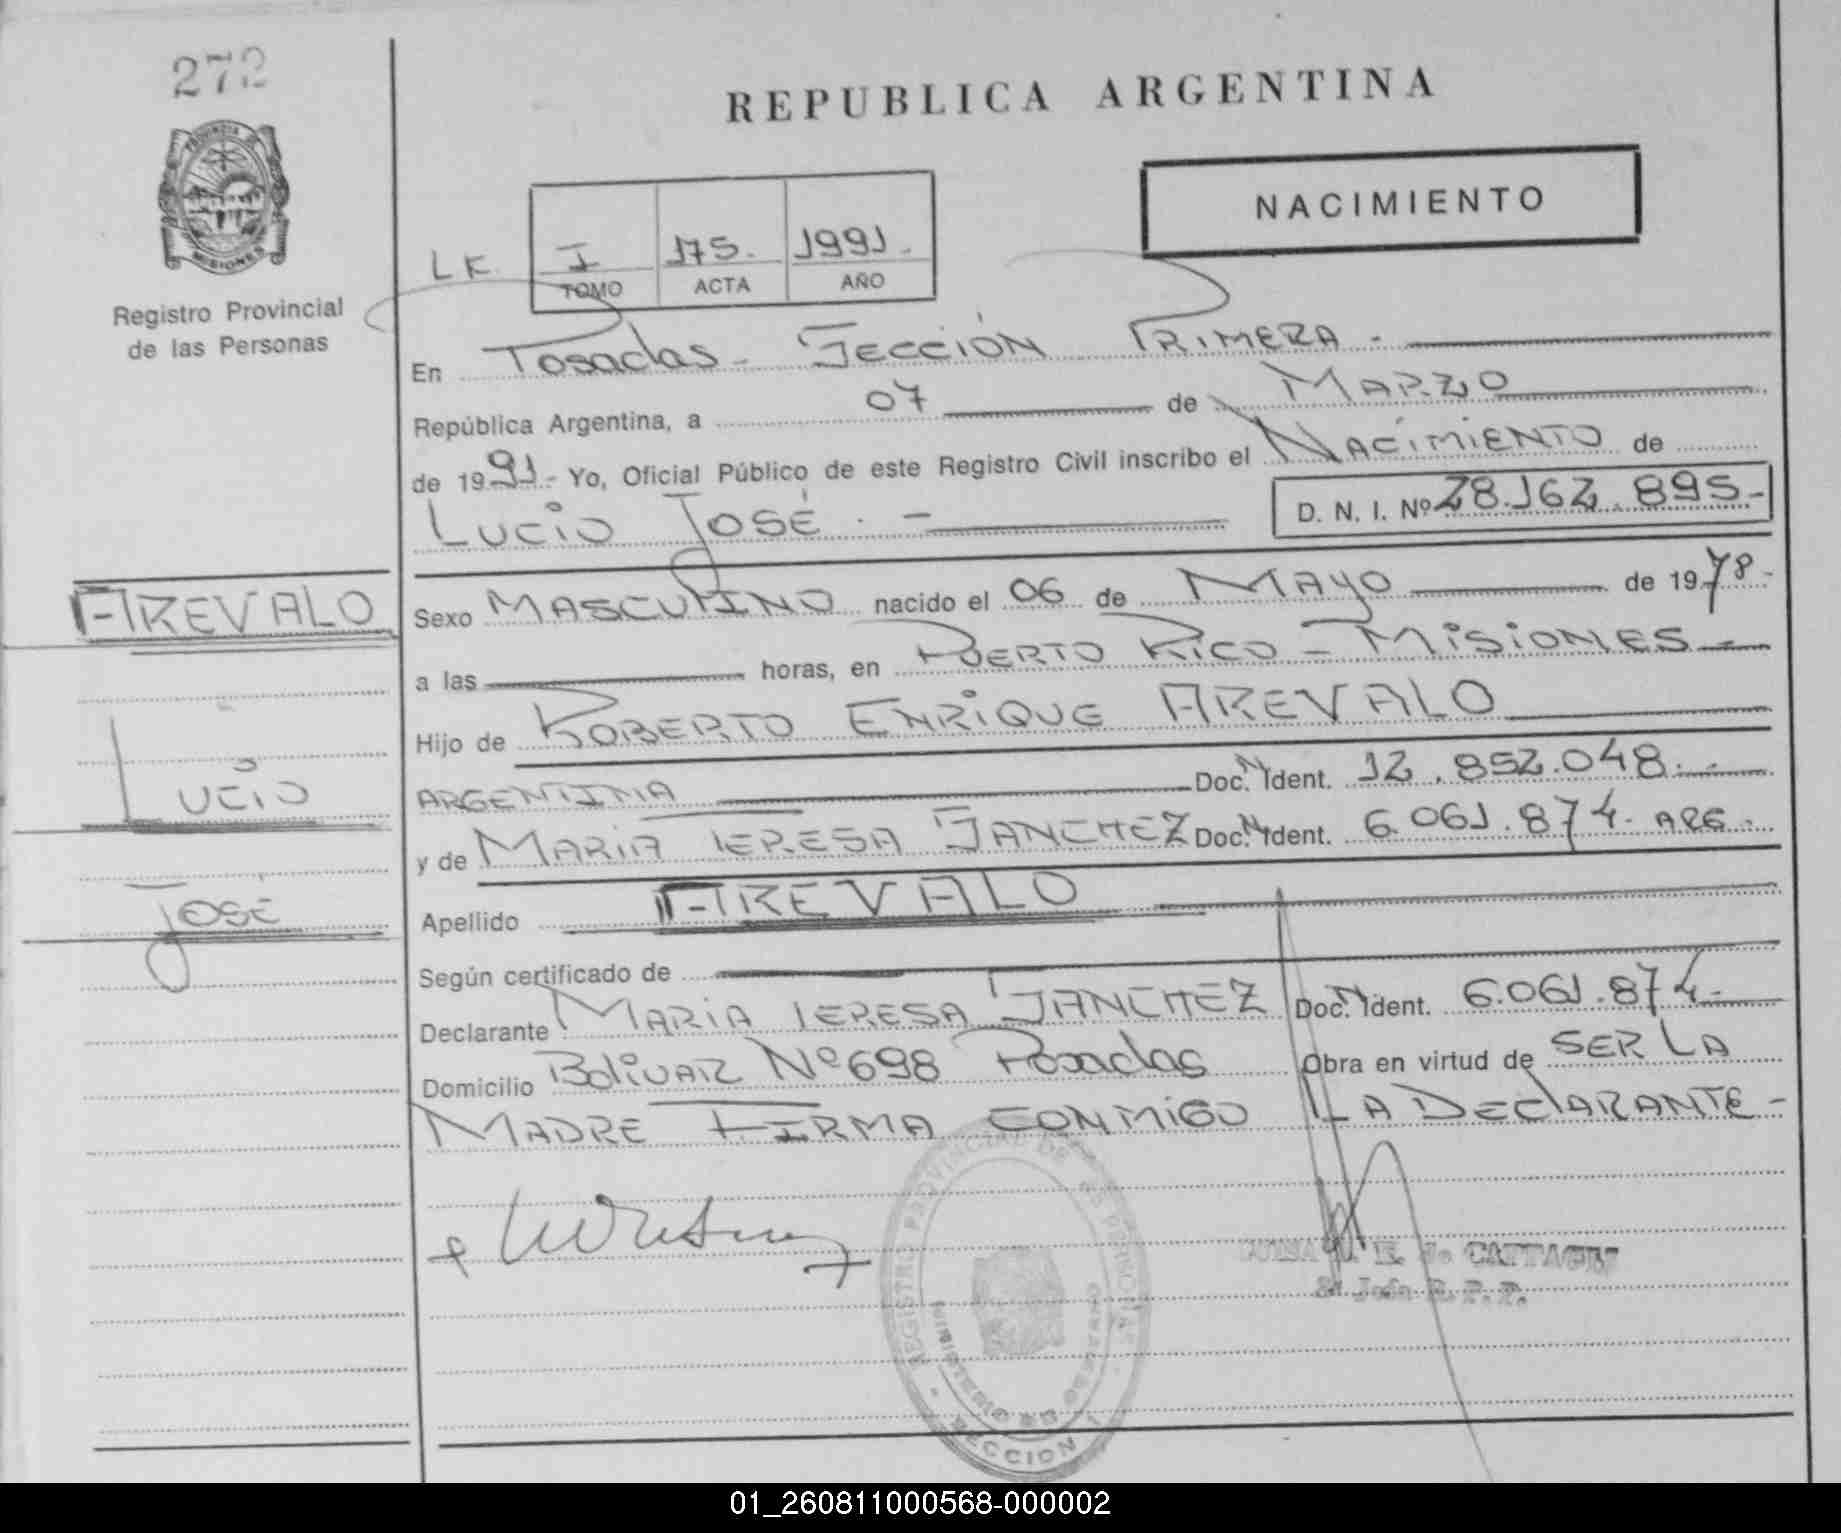 272
REPUBLICA ARGENTINA
PROVINCIA DE
MISIONES
Registro Provincial
de las Personas
NACIMIENTO
LK. I 175. 1991.
TOMO ACTA AÑO
En Posadas - SECCIÓN PRIMERA -
República Argentina, a 07 de MARZO
de 1991 - Yo, Oficial Público de este Registro Civil inscribo el NACIMIENTO de
LUCIO JOSÉ. - D. N. I. Nº 28.162.895-
AREVALO
Sexo MASCULINO nacido el 06 de MAYO de 1978-
a las horas, en PUERTO RICO - MISIONES -
Hijo de ROBERTO ENRIQUE AREVALO
ARGENTINA Doc. N Ident. 12.852.048.-
LUCIO
y de MARIA TERESA SANCHEZ Doc. N Ident. 6.061.874. ARG.
Apellido AREVALO
JOSÉ
Según certificado de
Declarante MARIA TERESA SANCHEZ Doc. N Ident. 6.061.874.-
Domicilio BOLIVAR Nº 698 Posadas Obra en virtud de SER LA
MADRE FIRMA CONMIGO LA DECLARANTE -
REGISTRO PROVINCIAL DE
MINISTERIO DE GOBIERNO
SECCION 1
R. P. P.
01_260811000568-000002